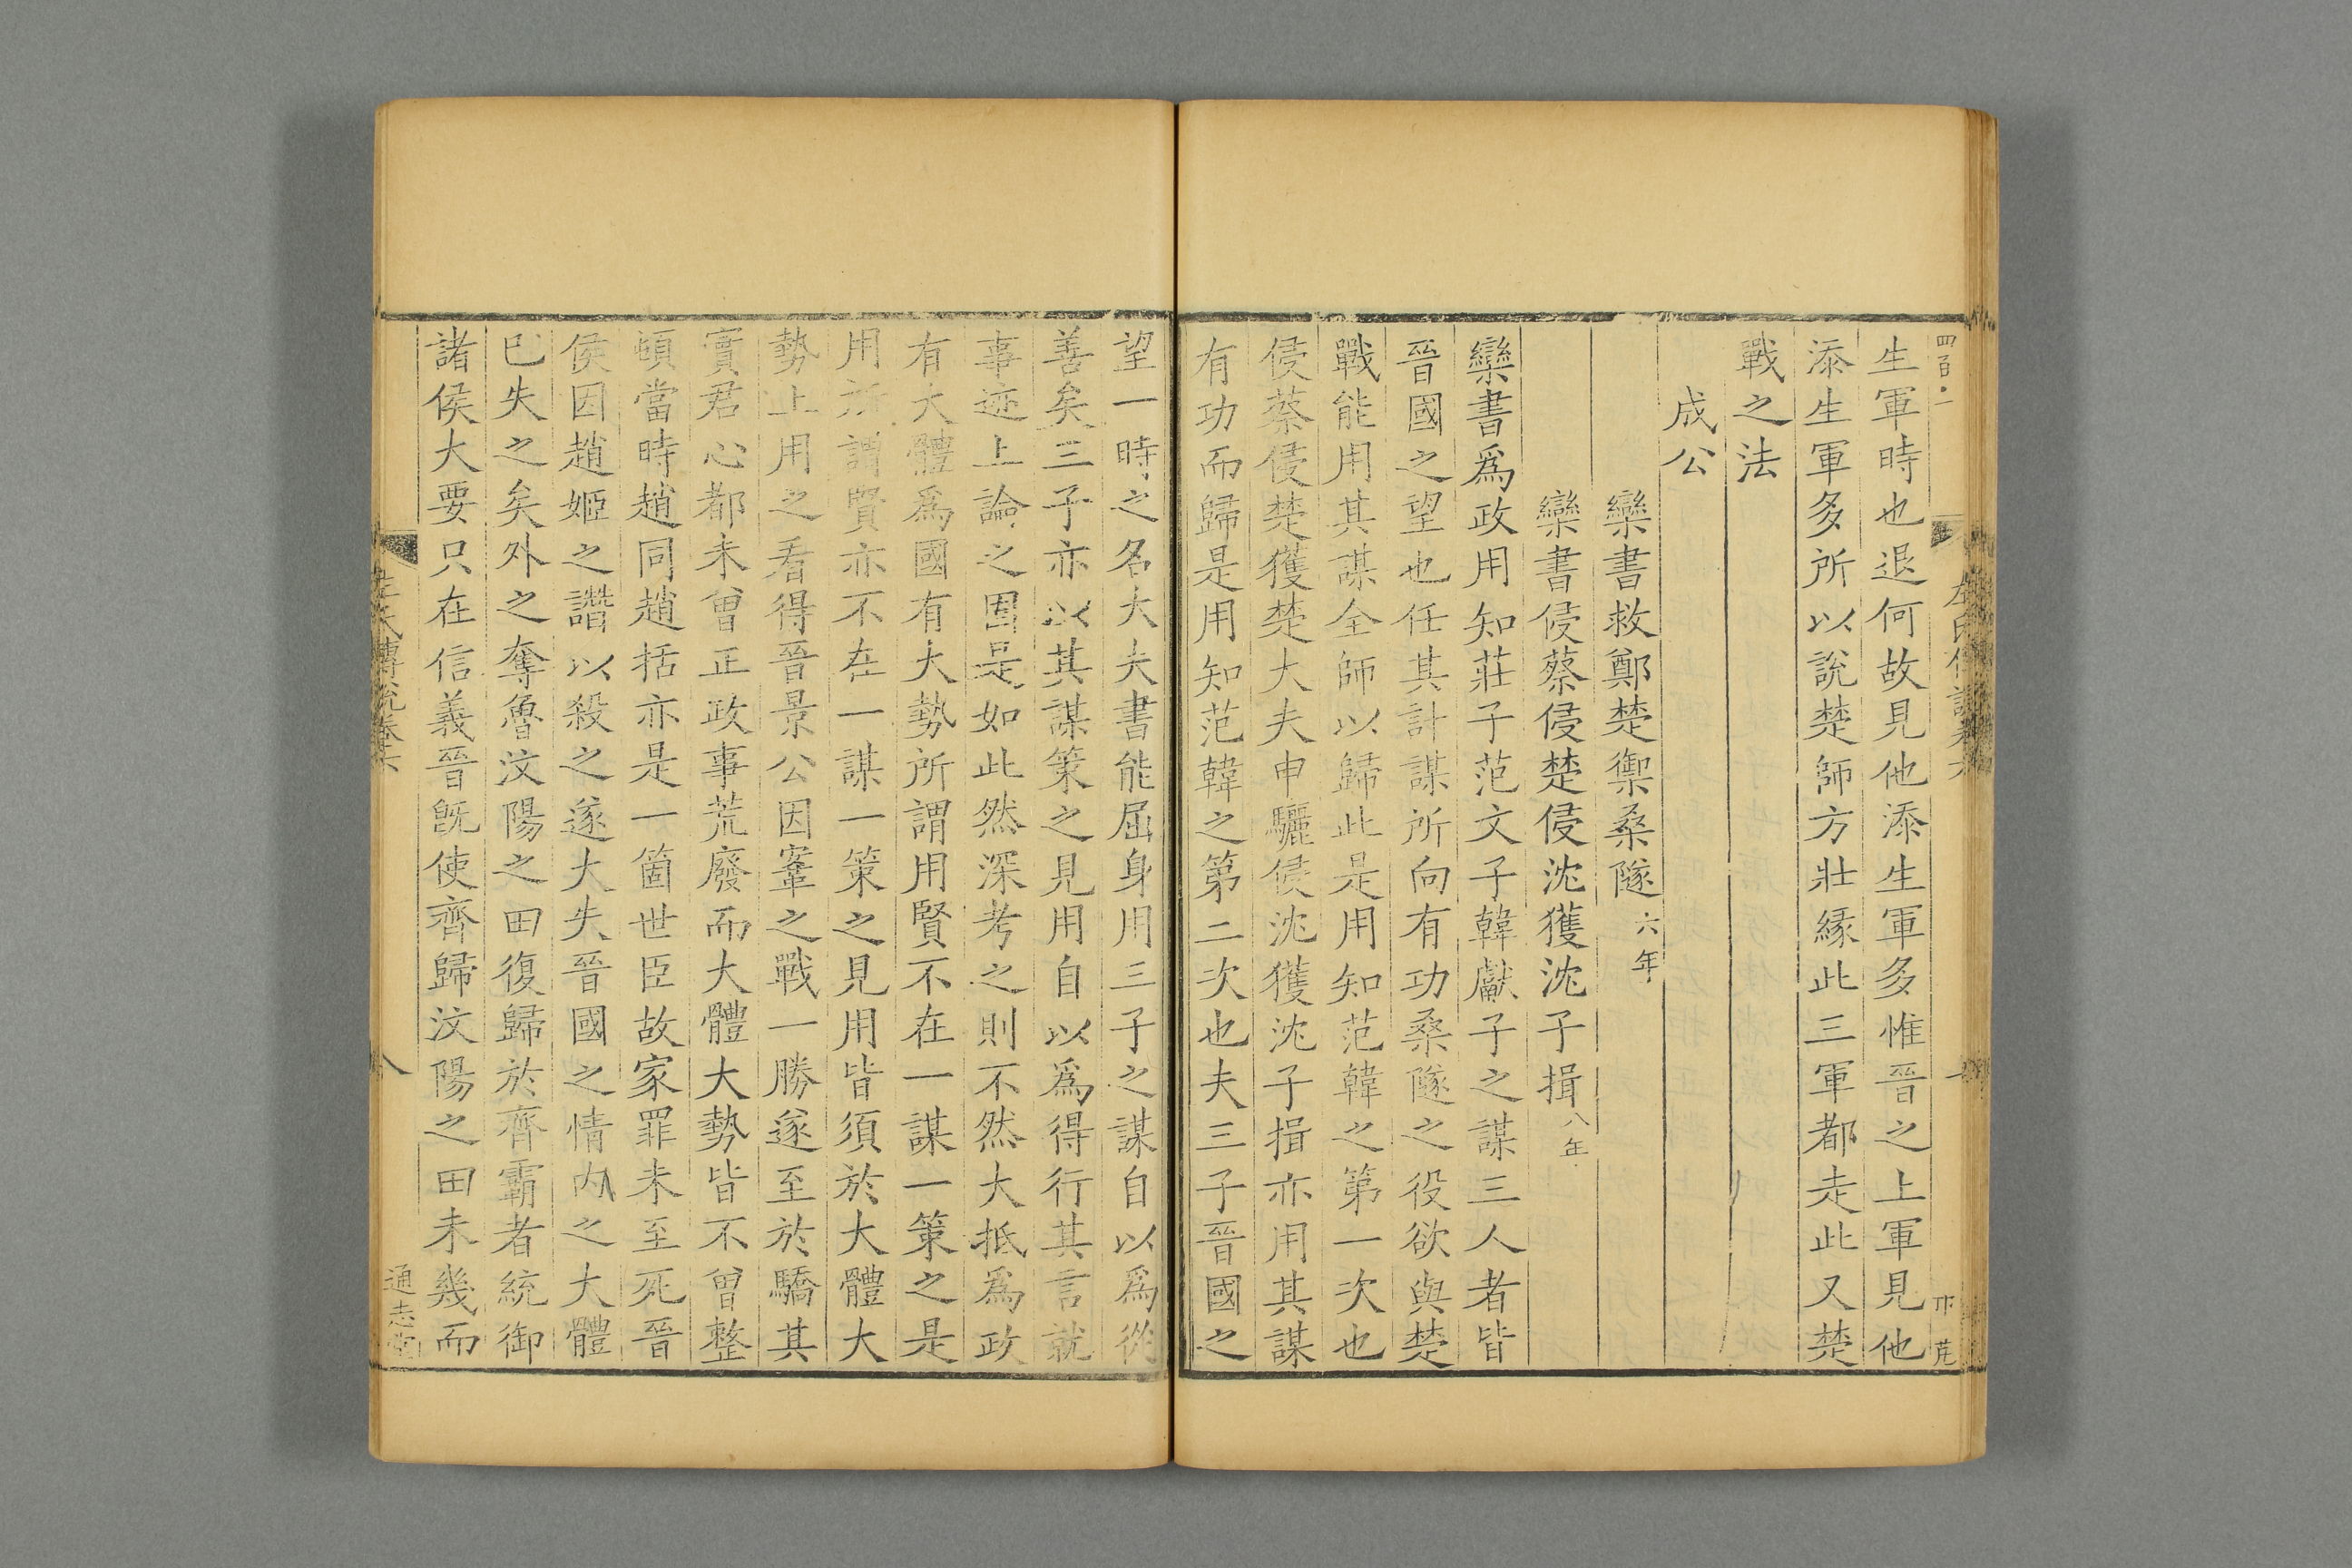 四百二
生軍時也退何故見他添生軍多惟晉之上軍見他
添生軍多所以説楚師方壯緣此三軍都走此又楚
戰之法
成公
欒書救鄭楚禦桑隧六年
欒書侵蔡侵楚侵沈獲沈子揖八年
欒書爲政用知莊子范文子韓獻子之謀三人者皆
晉國之望也任其計謀所向有功桑隧之役欲與楚
戰能用其謀全師以歸此是用知范韓之第一次也
侵蔡侵楚獲楚大夫申驪侵沈獲沈子揖亦用其謀
有功而歸是用知范韓之第二次也夫三子晉國之
望一時之名大夫書能屈身用三子之謀自以爲從
善矣三子亦以其謀策之見用自以爲得行其言就
事迹上論之固是如此然深考之則不然大抵爲政
有大體爲國有大勢所謂用賢不在一謀一策之是
用亦謂賢亦不在一謀一策之見用皆須於大體大
勢上用之看得晉景公因鞌之戰一勝遂至於驕其
實君心都未曾正政事荒廢而大體大勢皆不曾整
頓當時趙同趙括亦是一箇世臣故家罪未至死晉
侯因趙姬之譖以殺之遂大失晉國之情内之大體
巳失之矣外之奪魯汶陽之田復歸於齊霸者統御
諸侯大要只在信義晉旣使齊歸汶陽之田未幾而
左氏傳說卷六
八
通志堂